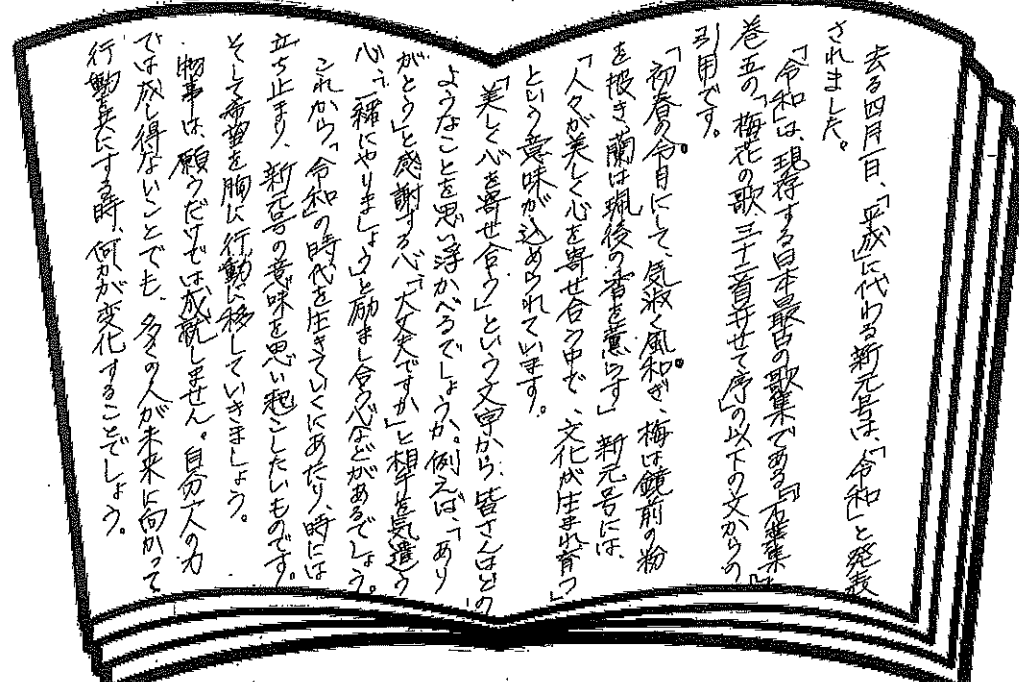 去る四月一日、「平成」に代わる新元号は、「令和」と発表
されました。
「令和」は、現存する日本最古の歌集である『万葉集』
巻五の「梅花の歌三十二首并せて序」の以下の文からの
引用です。
「初春の令月にして、気淑く風和ぎ、梅は鏡前の粉
を披き、蘭は珮後の香を薫らす」 新元号には、
「人々が美しく心を寄せ合う中で、文化が生まれ育つ」
という意味が込められています。
「美しく心を寄せ合う」という文字から、皆さんはどの
ようなことを思い浮かべるでしょうか。例えば、「あり
がとう」と感謝する心、「大丈夫ですか」と相手を気遣う
心、「一緒にやりましょう」と励まし合う心などがあるでしょう。
これから、「令和」の時代を生きていくにあたり、時には
立ち止まり、新元号の意味を思い起こしたいものです。
そして希望を胸に行動に移していきましょう。
物事は、願うだけでは成就しません。自分一人の力
では成し得ないことでも、多くの人が未来に向かって
行動を共にする時、何かが変化することでしょう。